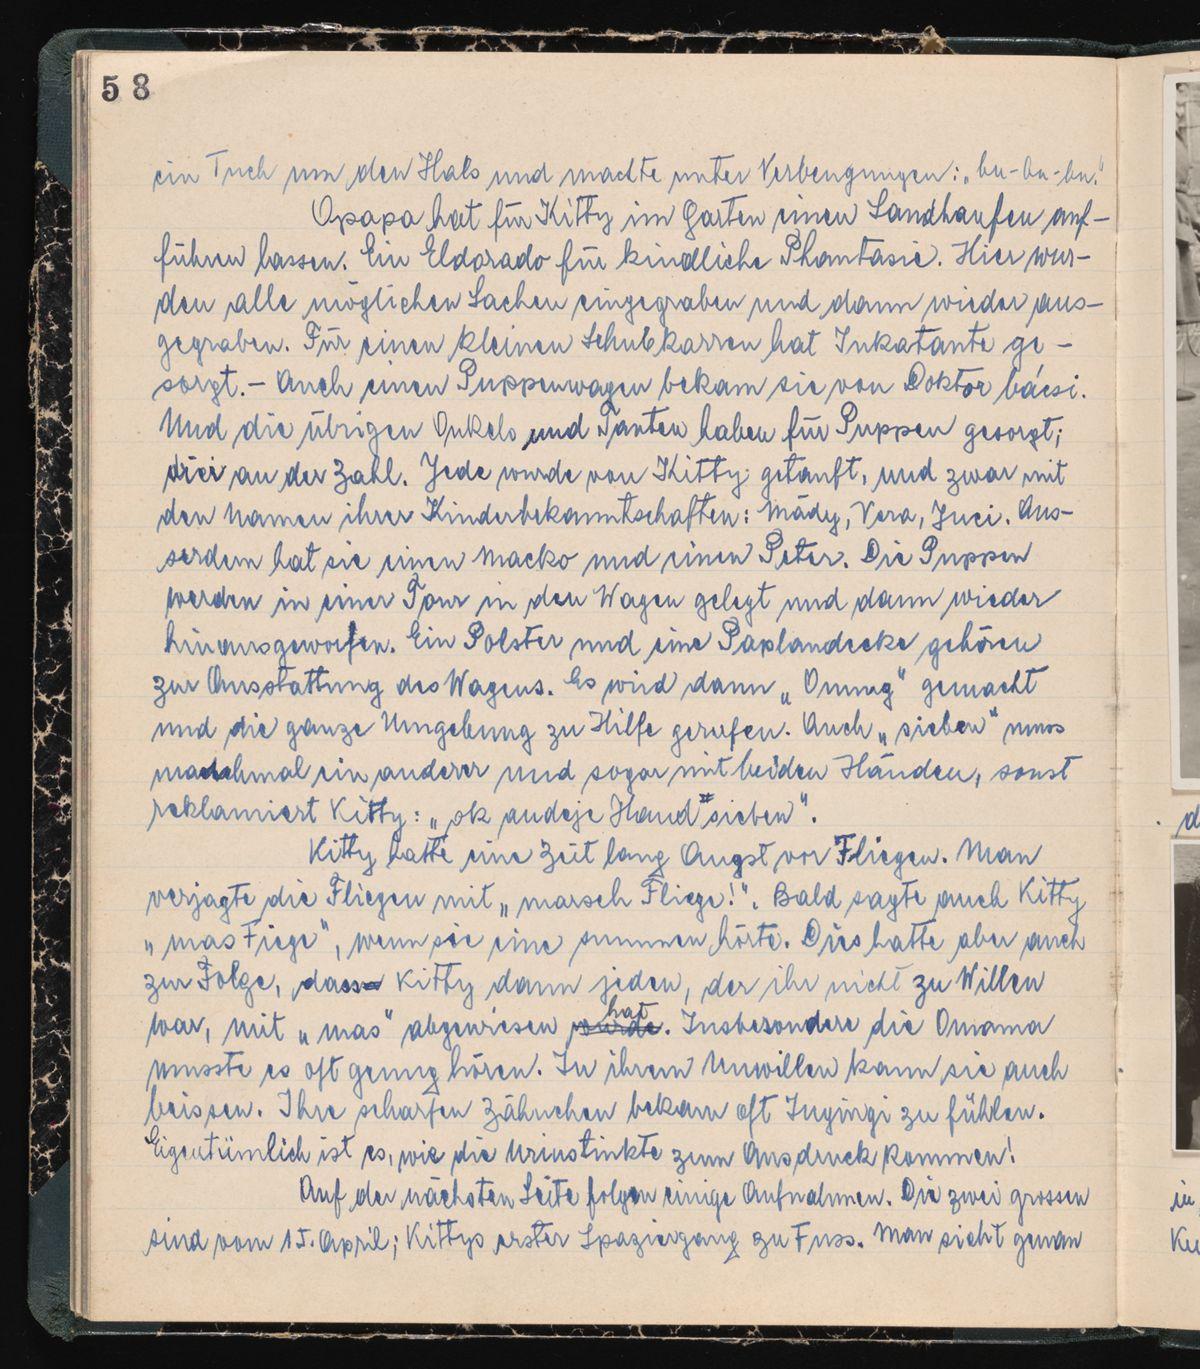 58
ein Tuch um den Hals und machte unter Verbeugungen: „bu-bu-bu."
Opapa hat für Kitty im Garten einen Sandhaufen auf-
führen lassen. Ein Eldorado für kindliche Phantasie. Hier wur-
den alle möglichen Sachen eingegraben und dann wieder aus-
gegraben. Für einen kleinen Schubkarren hat Inkatante ge-
sorgt. – Auch einen Puppenwagen bekam sie von Doktor bácsi.
Und die übrigen Onkels und Tanten haben für Puppen gesorgt;
drei an der Zahl. Jede wurde von Kitty getauft, und zwar mit
den Namen ihrer Kinderbekanntschaften: Mädy, Vera, Juci. Aus-
serdem hat sie einen Macko und einen Peter. Die Puppen
werden in einer Tour in den Wagen gelegt und dann wieder
hinausgeworfen. Ein Polster und eine Paplandecke gehören
zur Ausstattung des Wagens. Es wird dann „ Onung" gemacht
und die ganze Umgebung zu Hilfe gerufen. Auch „ sieben" muss
manchmal ein anderer und sogar mit beiden Händen, sonst
reklamiert Kitty: „ ok andeje Hand sieben".
Kitty hatte eine Zeit lang Angst vor Fliegen. Man
verjagte die Fliegen mit „ marsch Fliege!". Bald sagte auch Kitty
„ mas Fiege", wenn sie eine summen hörte. Dies hatte aber auch
zur Folge, dass Kitty dann jeden, der ihr nicht zu Willen
hat
war, mit „ mas" abgewiesen wurde. Insbesondere die Omama
musste es oft genug hören. In ihrem Unwillen kann sie auch
beissen. Ihre scharfen Zähnchen bekam oft Ingingi zu fühlen.
Eigentümlich ist es, wie die Urinstinkte zum Ausdruck kommen!
Auf der nächsten Seite folgen einige Aufnahmen. Die zwei grossen
sind vom 15. April; Kittys erster Spaziergang zu Fuss. Man sieht genau